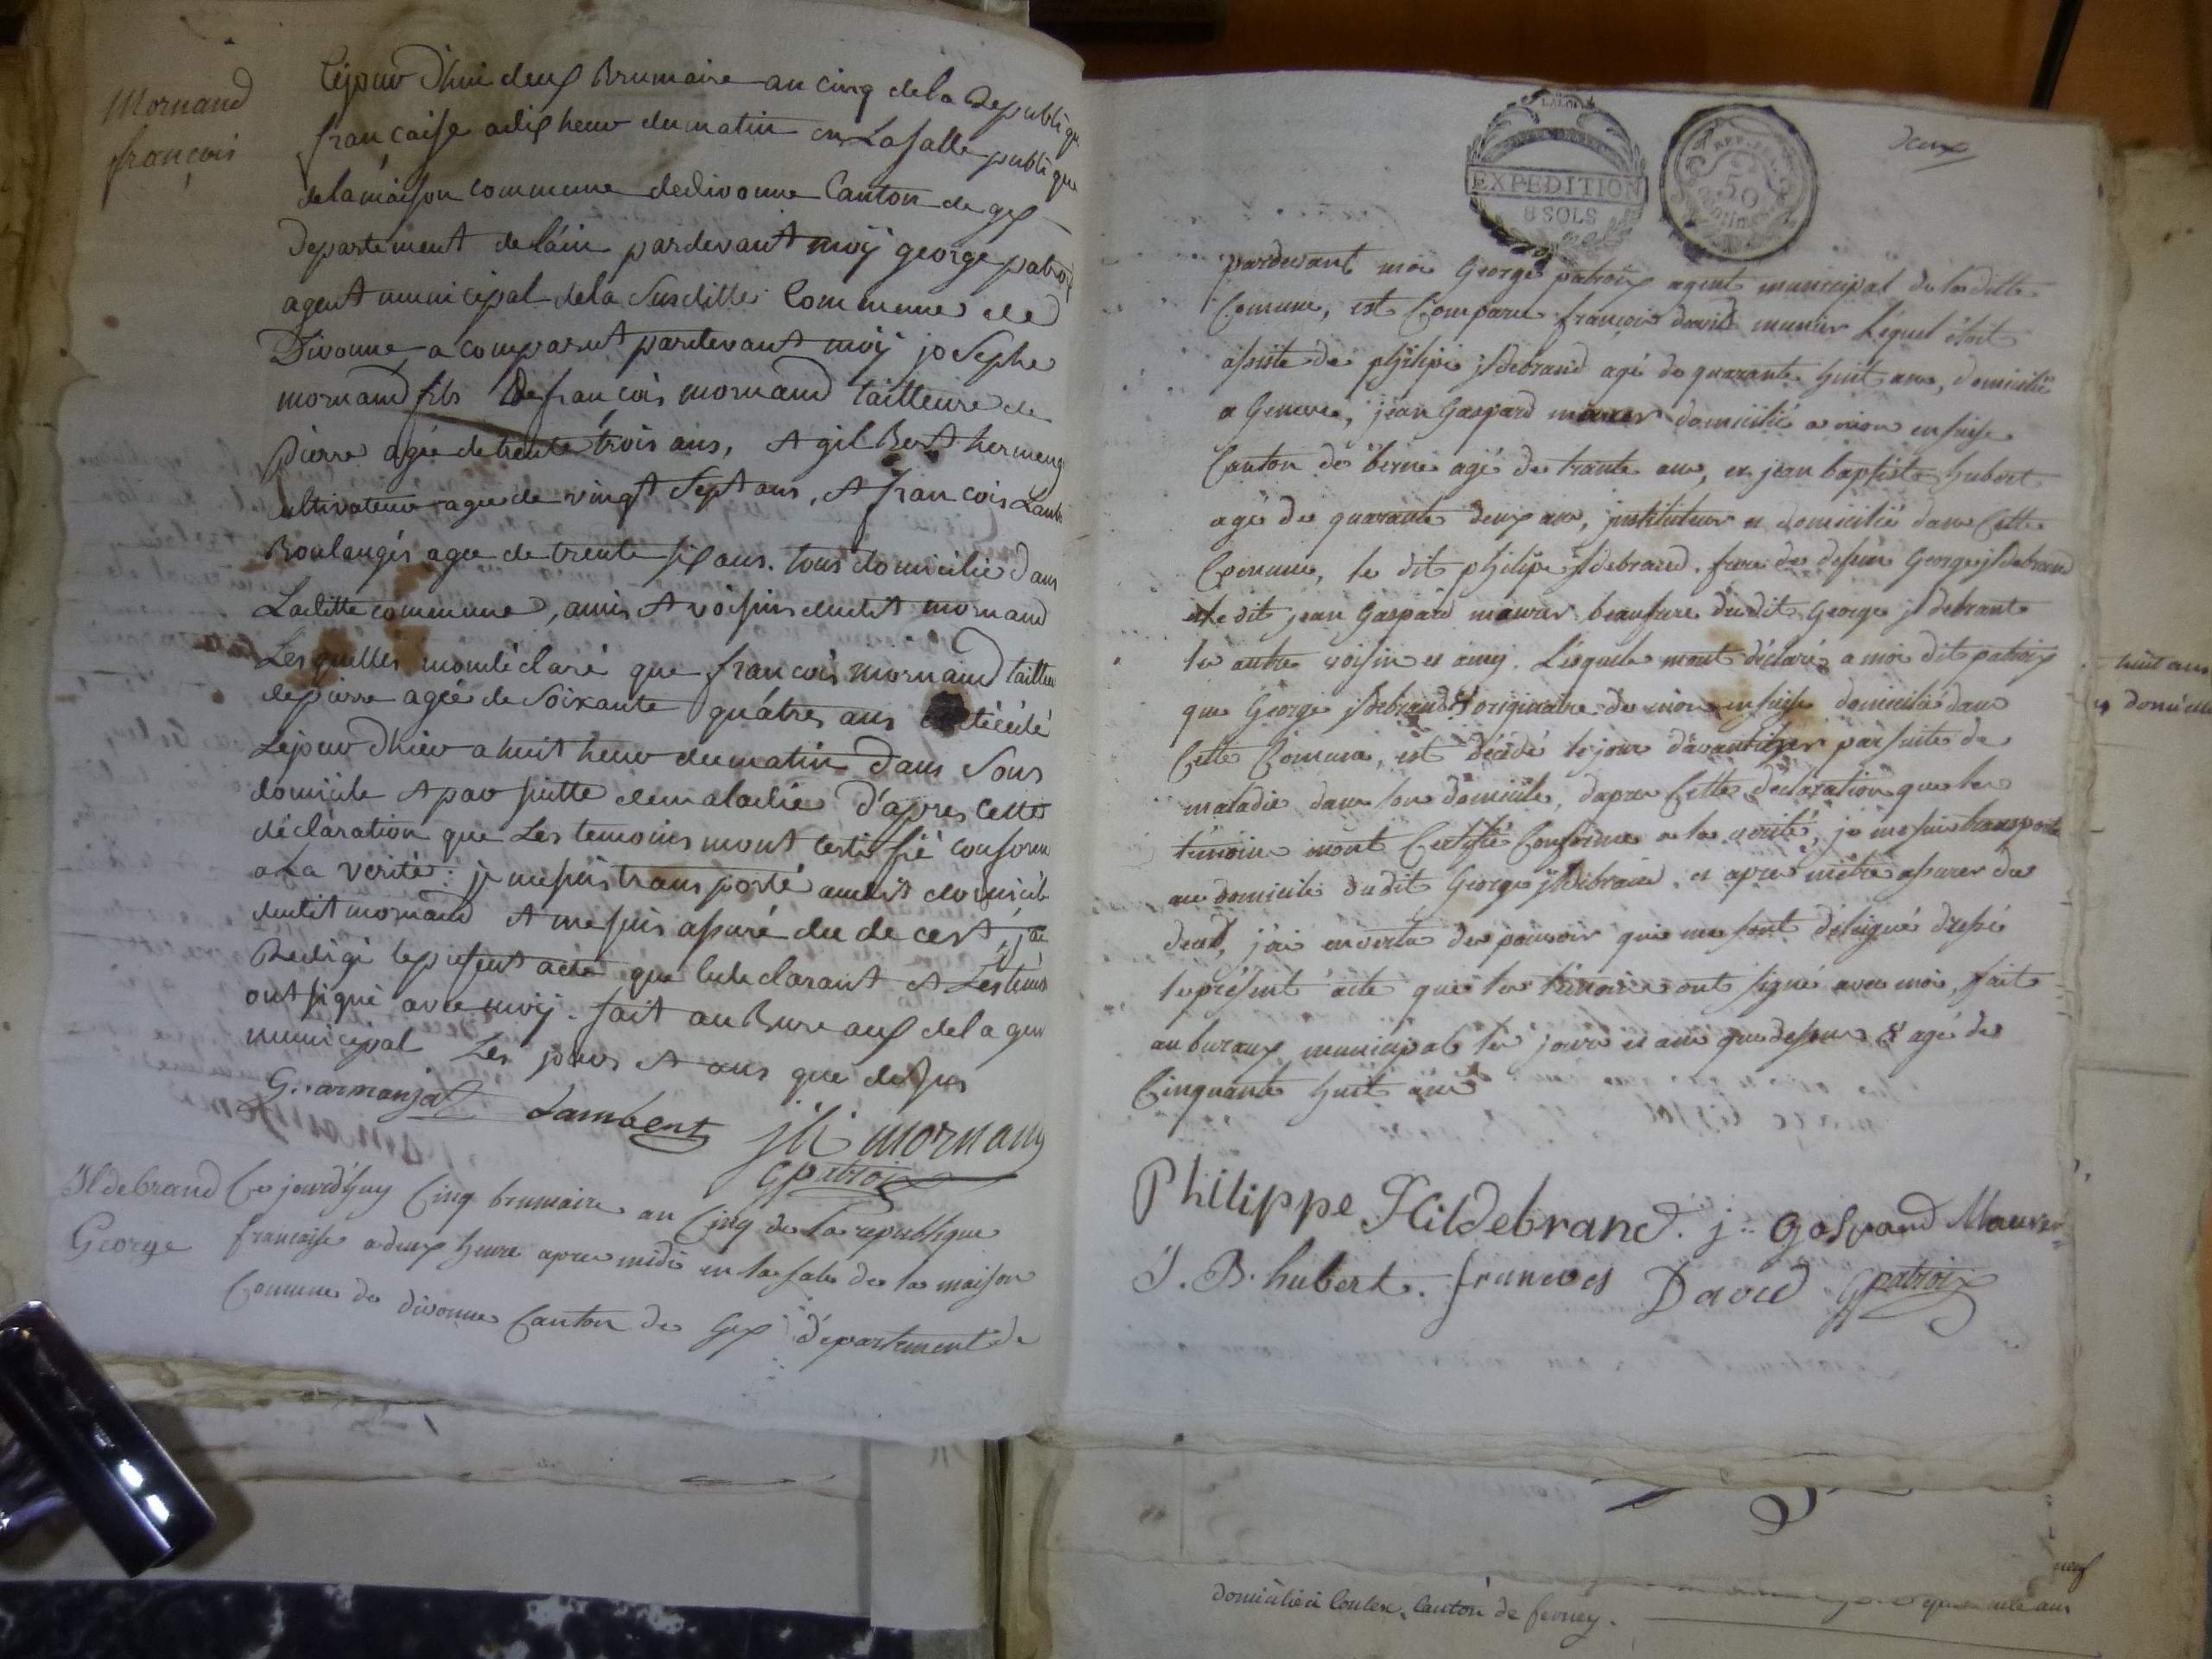 Mornand
françois
Cejour dhui deux Brumaire an cinq dela Republique
francaise adix heur dumatin en Lasalle publique
delamaison commune dedivonne Canton de gex
Departement delain pardevant moÿ george patroix
agent municipal dela Susditte Commune de
Divonne a comparut pardevant moÿ josephe
mornand fils De francois mornand tailleure de
pierre agée detrente trois ans, et gilBert
cultivateur agée de vingt Sept ans, et francois Lamb
Boulangés agee de trente six ans. tous domicilié dans
Laditte commune, amis et voisins dudit mornand
Lesquelles mondéclaré que francois mornand tailleu
depierre agée de Soixante quátres ans décédé
Lejour dhier a huit heur dumatin dans Sons
domicile et par suitte demaladie d'apres cette
déclaration que Les temoins mont certiffié conform
a La verité: je mesuis transporté audit domicile
dudit mornand et mesuis assuré du decert, jai
Redigé lepresent acte que ledeclarant et Les témoi
ont signé avec moÿ. fait au Bureaux del agen
municipal Les jours et ans que dessus
G. armanjat Lambert jh mornand
G patroix
Ildebrand
George
Ce jourd'huy Cinq brumaire an Cinq de la republique
francaise a deux heure apres midi en la sale de la maison
Comune de divonne Canton de Gex département de
deux
LA LOI
EXPEDITION
8 SOLS
REP. FRA.
50
Centimes
pardevant moi George patroix agent municipal de la ditte
Comune, est Comparu françois david munier Léquel étoit
assisté de philipe jldebrand agé de quarante huit ans, domicilié
a Geneve, jean Gaspard maurer domicilié a nion en suisse
Canton de berne agé de trante ans, et jean baptiste hubert
agé de quarante deux ans, jnstituteur et domicilié dans Cette
Comune, le dit philipe jldebrand. frere de defun George jldebrand
et le dit jean Gaspard maurer beaufrere du dit George jldebrante
les autres voisin et amij. Lesquels mont déclaré a moi dit patroix
que George jldebrand originaire de nion en suisse domicilié dans
Cette Comune, est décédé le jour davantihier par suite de
maladie dans son domicile, dapres Cette declaration que les
témoins mont Certifié Conforme a la verité, je me suis transporté
au domicile du dit George jldebrand, et apres mètre assurer du
deced, j'ai en vertu des pouvoir qui me sont délégué dressé
le présent acte que les témoins ont signé avec moi, fait
au bureaux municipal les jours et ans que dessus & agé de
Cinquante huit ans
Philippe Hildebrand. j: Gaspard Maurer
J. B. hubert. francois David G patroix
huit ans
domicilié
neuf
domicilié à Coulex, Canton de ferney.